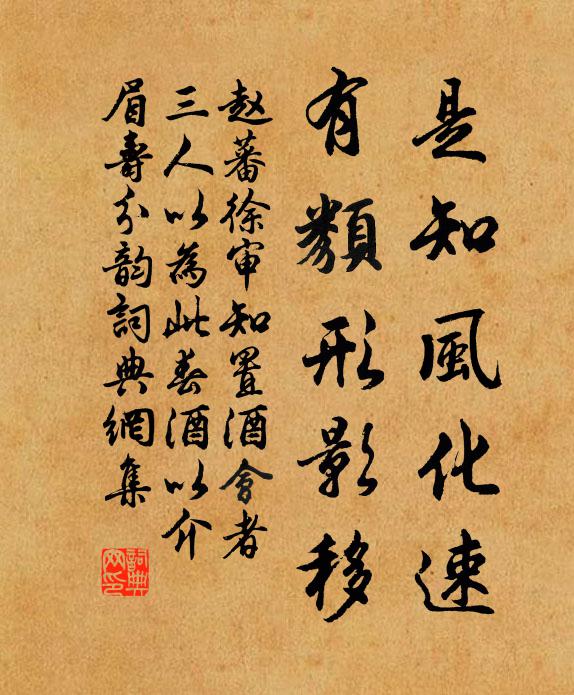 是知風化速
有類形影移
赵蕃徐审知置酒會者
三人以為此春酒以介
眉壽分韵詞典網集
詞典网印